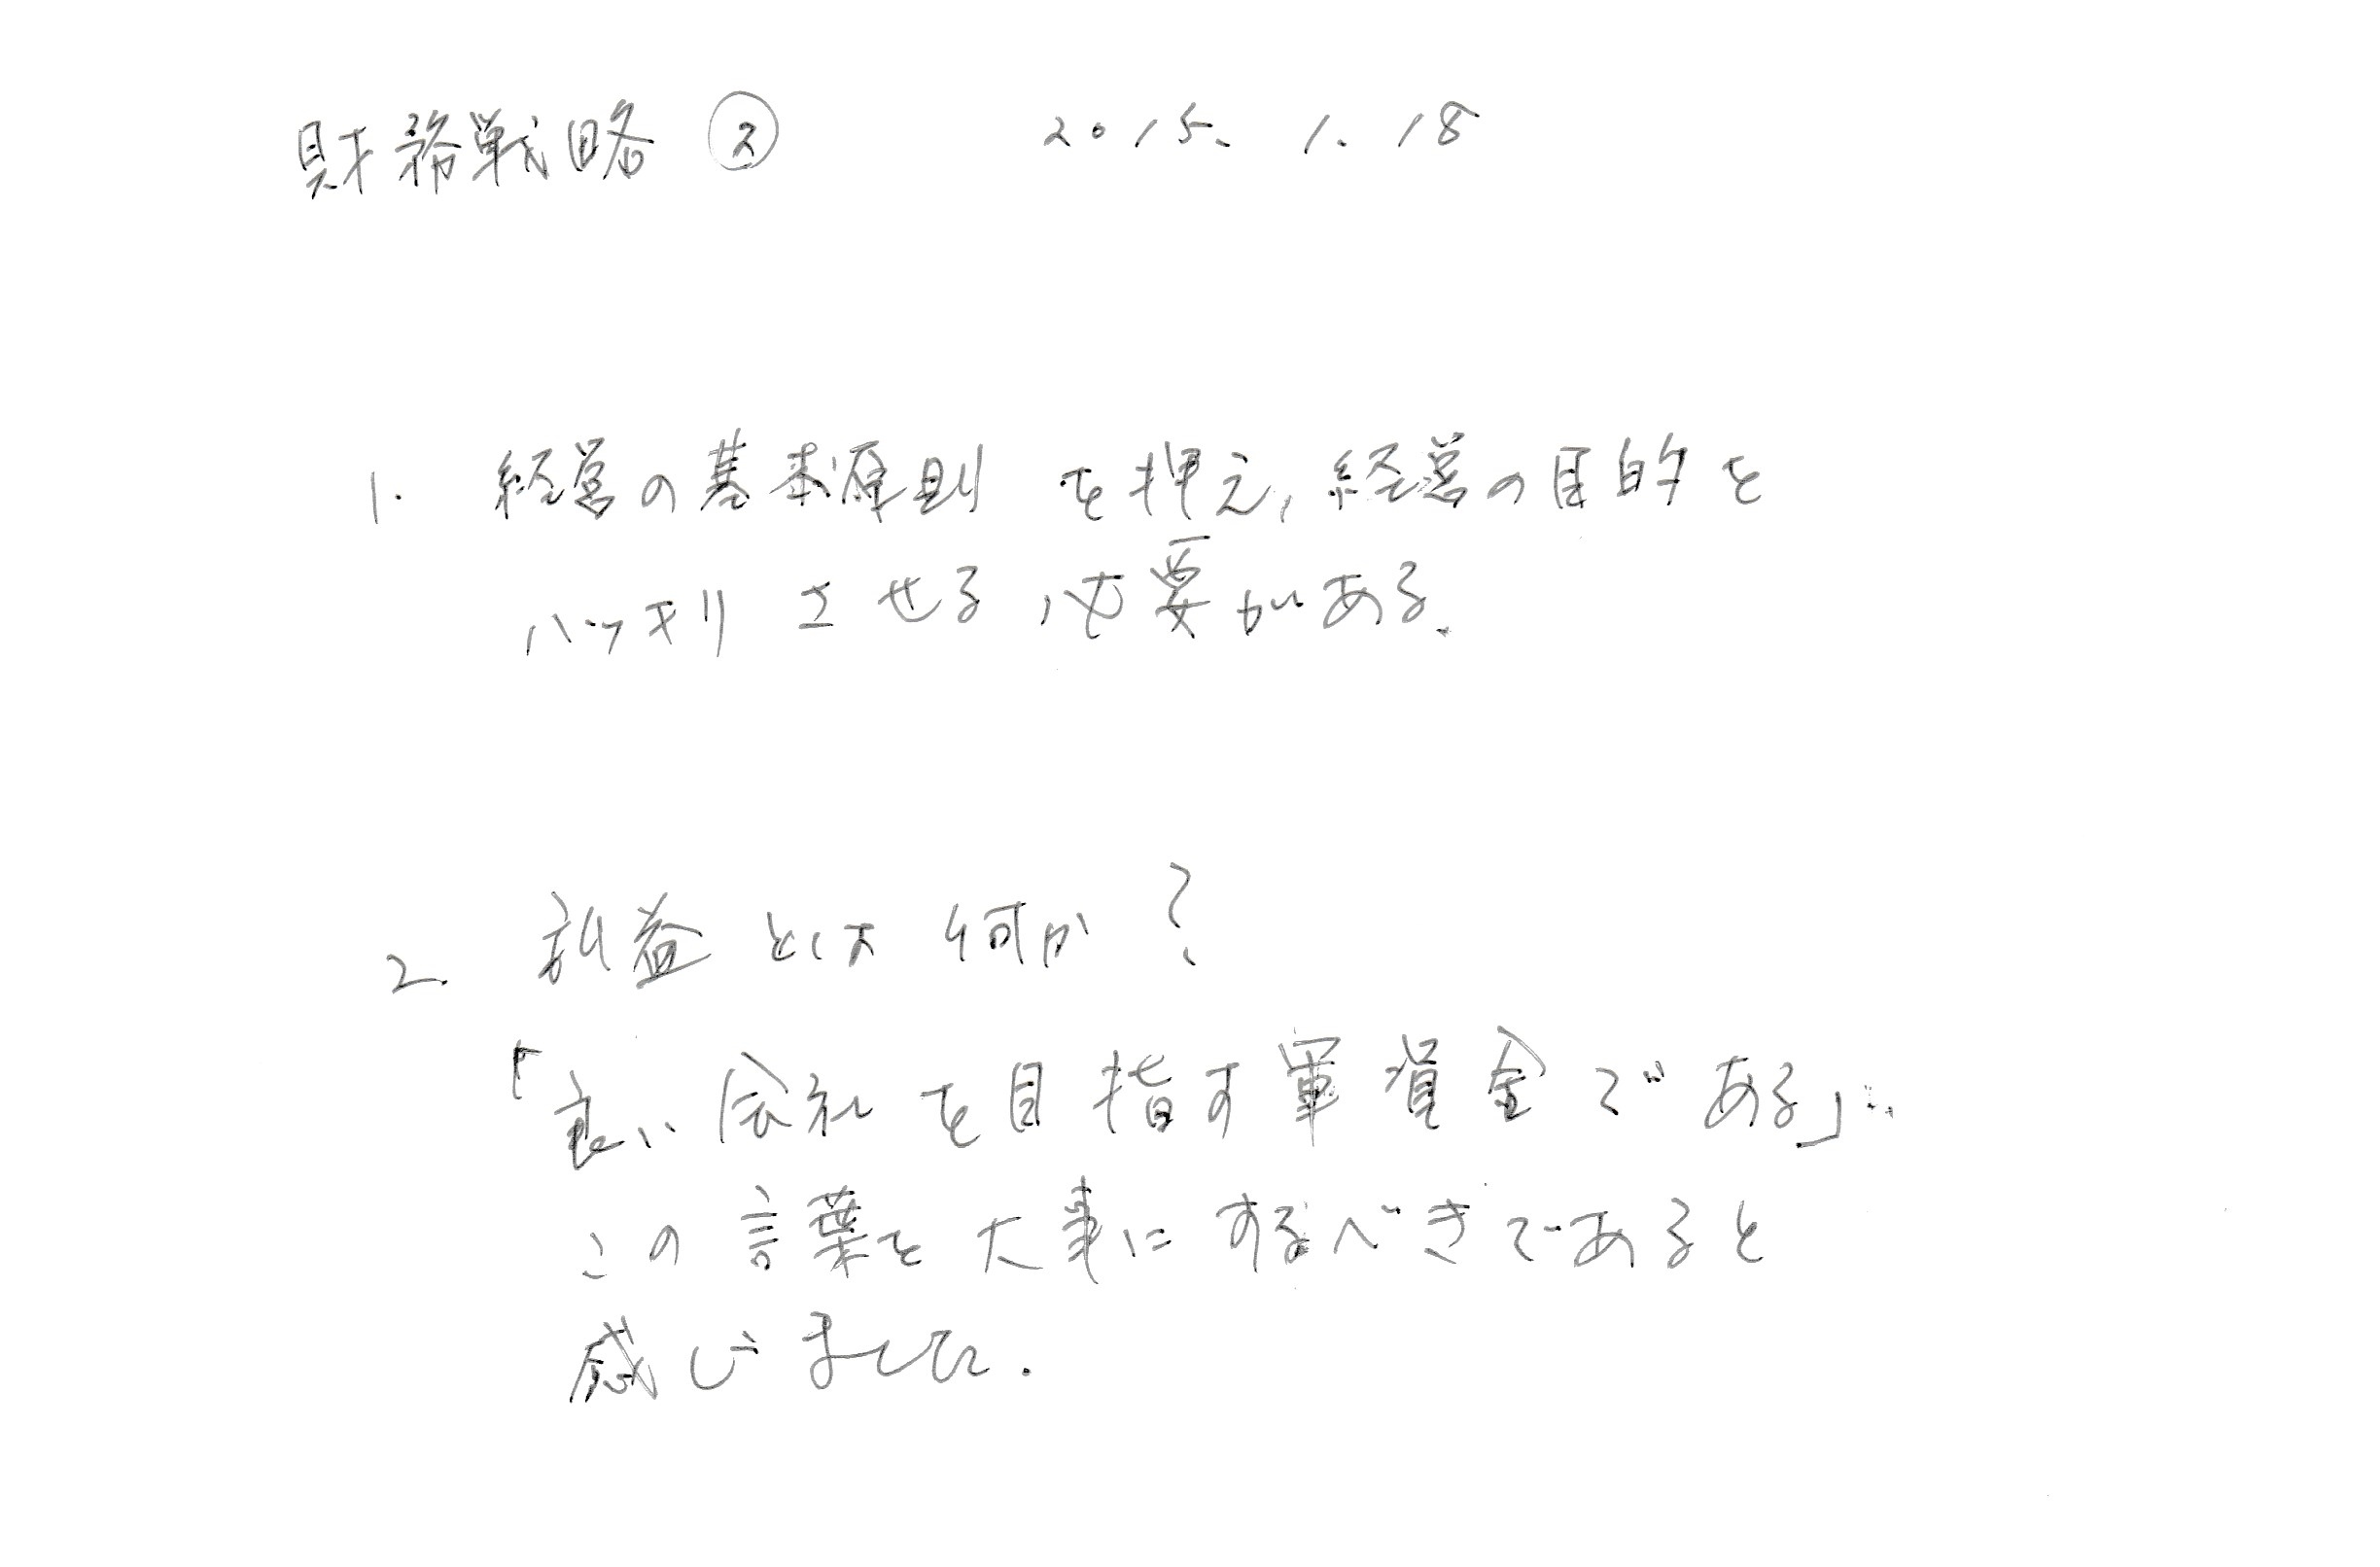 財務戦略 ② 2015. 1. 18
1. 経営の基本原則を押え, 経営の目的を
ハッキリさせる必要がある.
2. 利益とは何か?
「良い会社を目指す軍資金である」.
この言葉を大事にするべきであると
感じました.